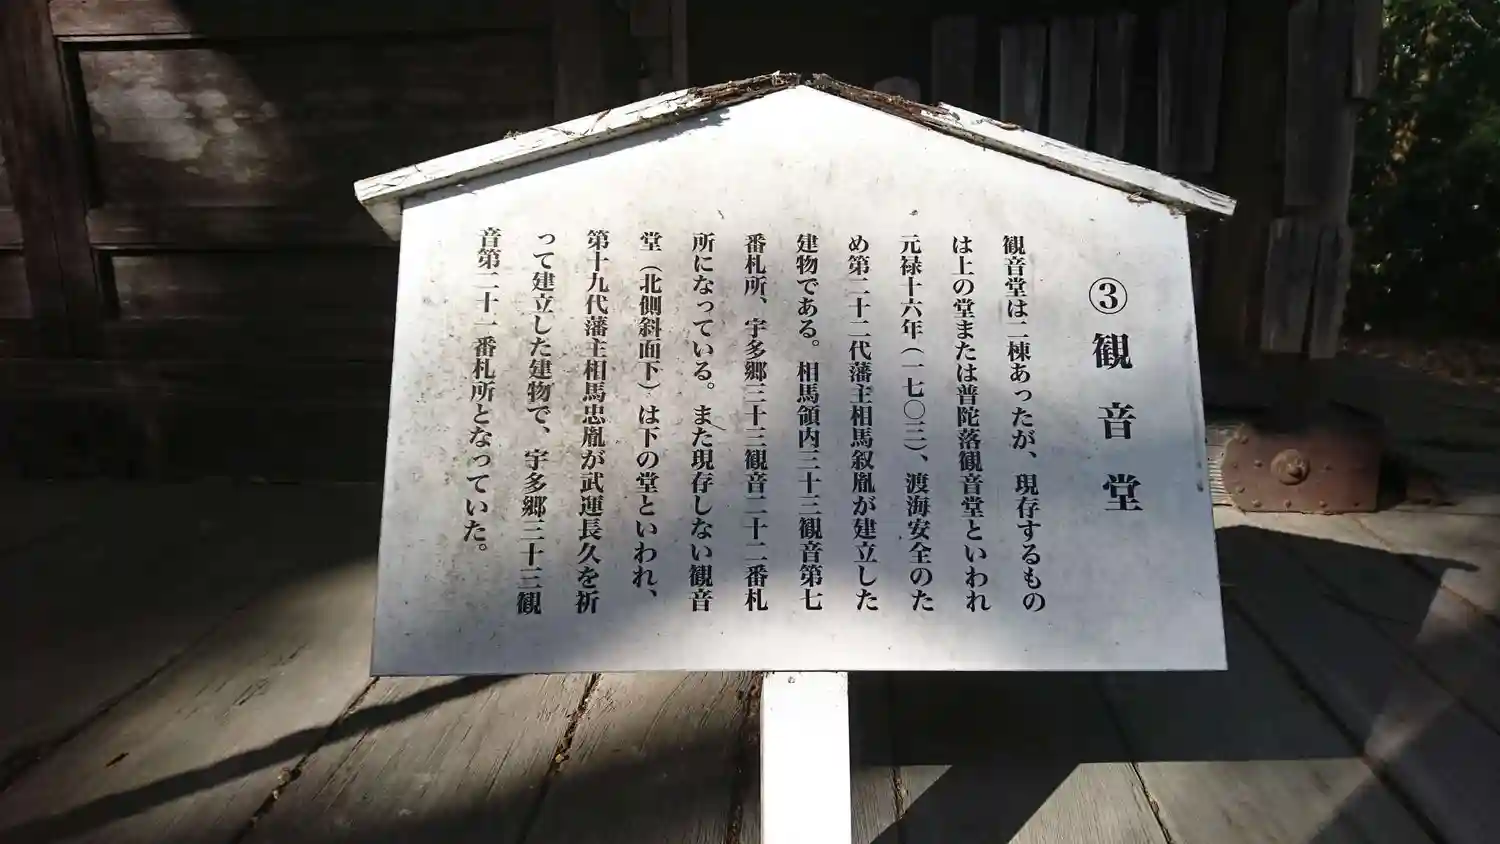 ③観音堂
観音堂は二棟あったが、現存するもの
は上の堂または普陀落観音堂といわれ
元禄十六年(一七〇三)、渡海安全のた
め第二十二代藩主相馬叙胤が建立した
建物である。相馬領内三十三観音第七
番札所、宇多郷三十三観音二十二番札
所になっている。また現存しない観音
堂(北側斜面下)は下の堂といわれ、
第十九代藩主相馬忠胤が武運長久を祈
って建立した建物で、宇多郷三十三観
音第二十一番札所となっていた。